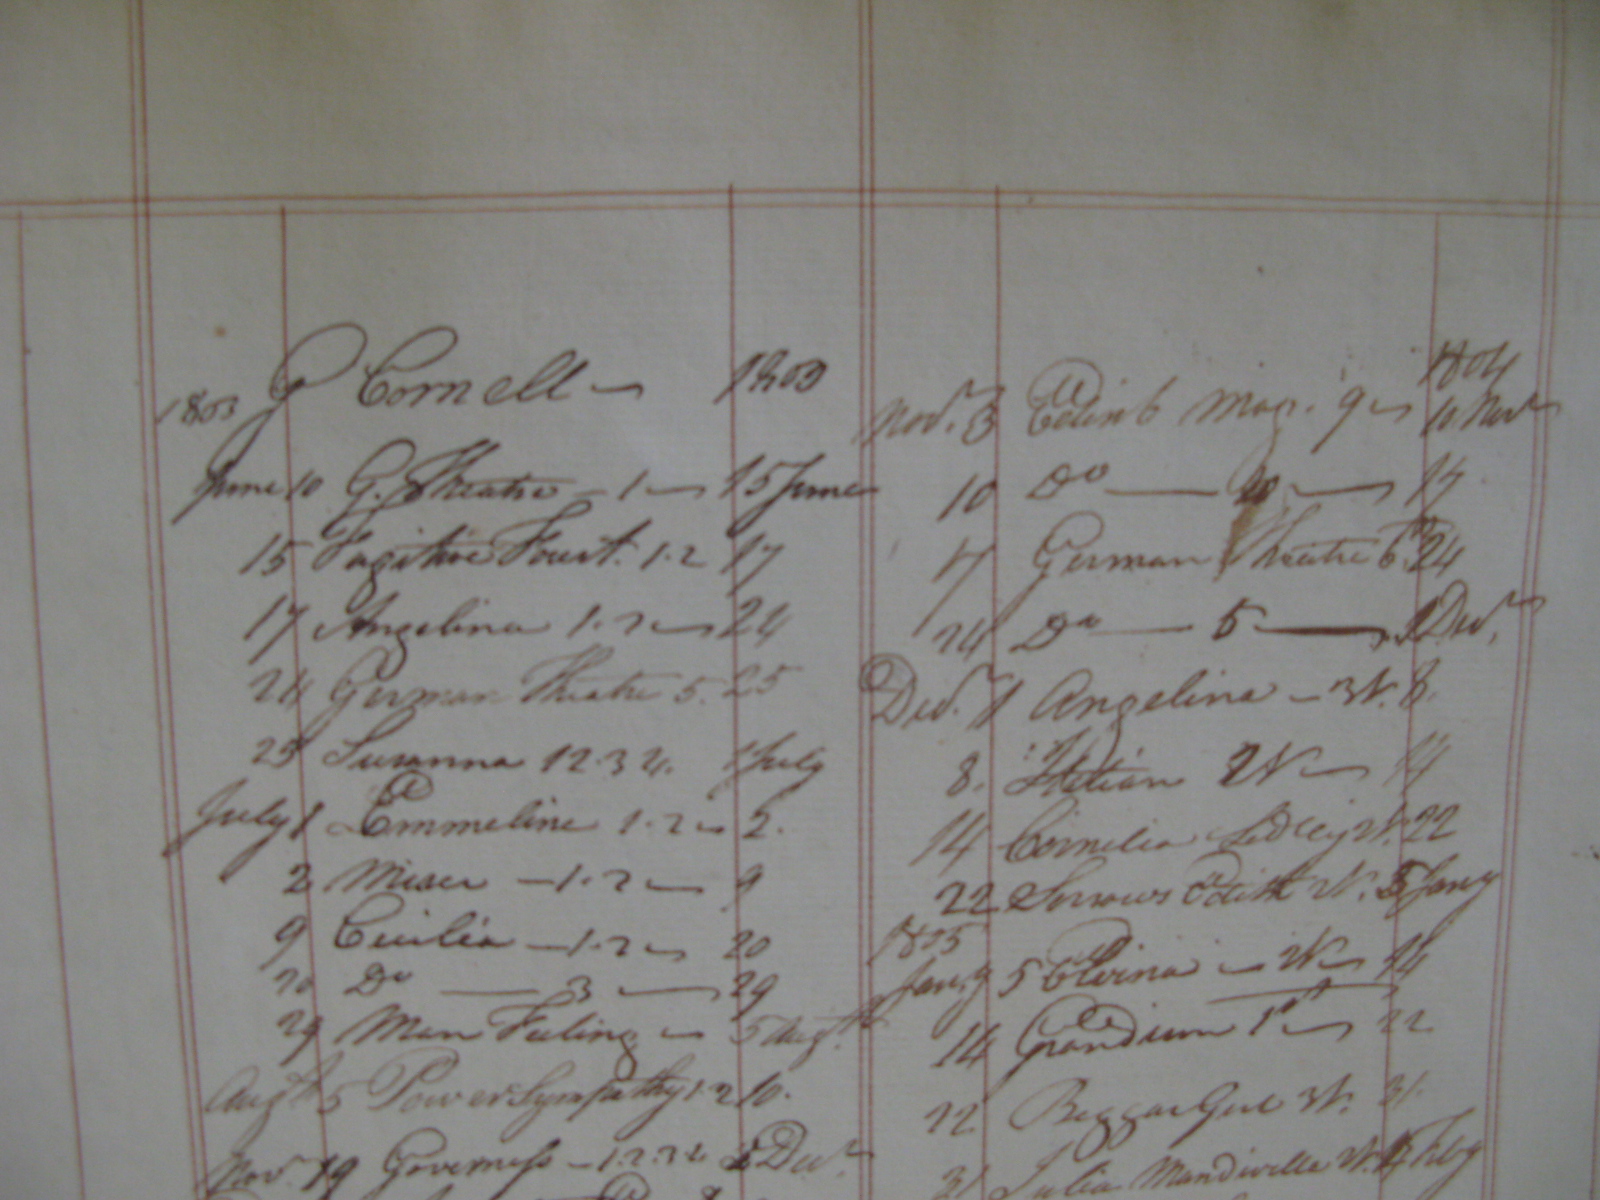 1803 G Cornell 1803
June 10 G. Theatre 1 15 June
15 Fugitive Forest. 1.2 17
17 Angelina 1.2 24
24 German Theatre 5. 25
25 Susanna 1 2 3 4. 1 July
July 1 Emmeline 1.2 2.
2 Miser 1.2 9
9 Cicilia 1.2 20
20 Do 3 29
29 Man Feeling 5 Augt.
Augt 5 Power Sympathy 1.2 10.
Novr 19 Governess 1.2.3.4 Decr.
1804
Novr. 3 Edinb Mag. 9 10 Novr
10 Do 17
17 German Theatre 6 24
24 Do 5 1 Decr.
Decr. 1 Angelina 3 V. 8.
8. 2 V 14
14 Cornelia Sedley V. 22
22 Sorrows Edith V. 5 Jany
1805
Jany 5 Elvina V 14
14 1st 22
22 Beggar Girl 3 V. 31.
31 Julia Mandiville V. Feby